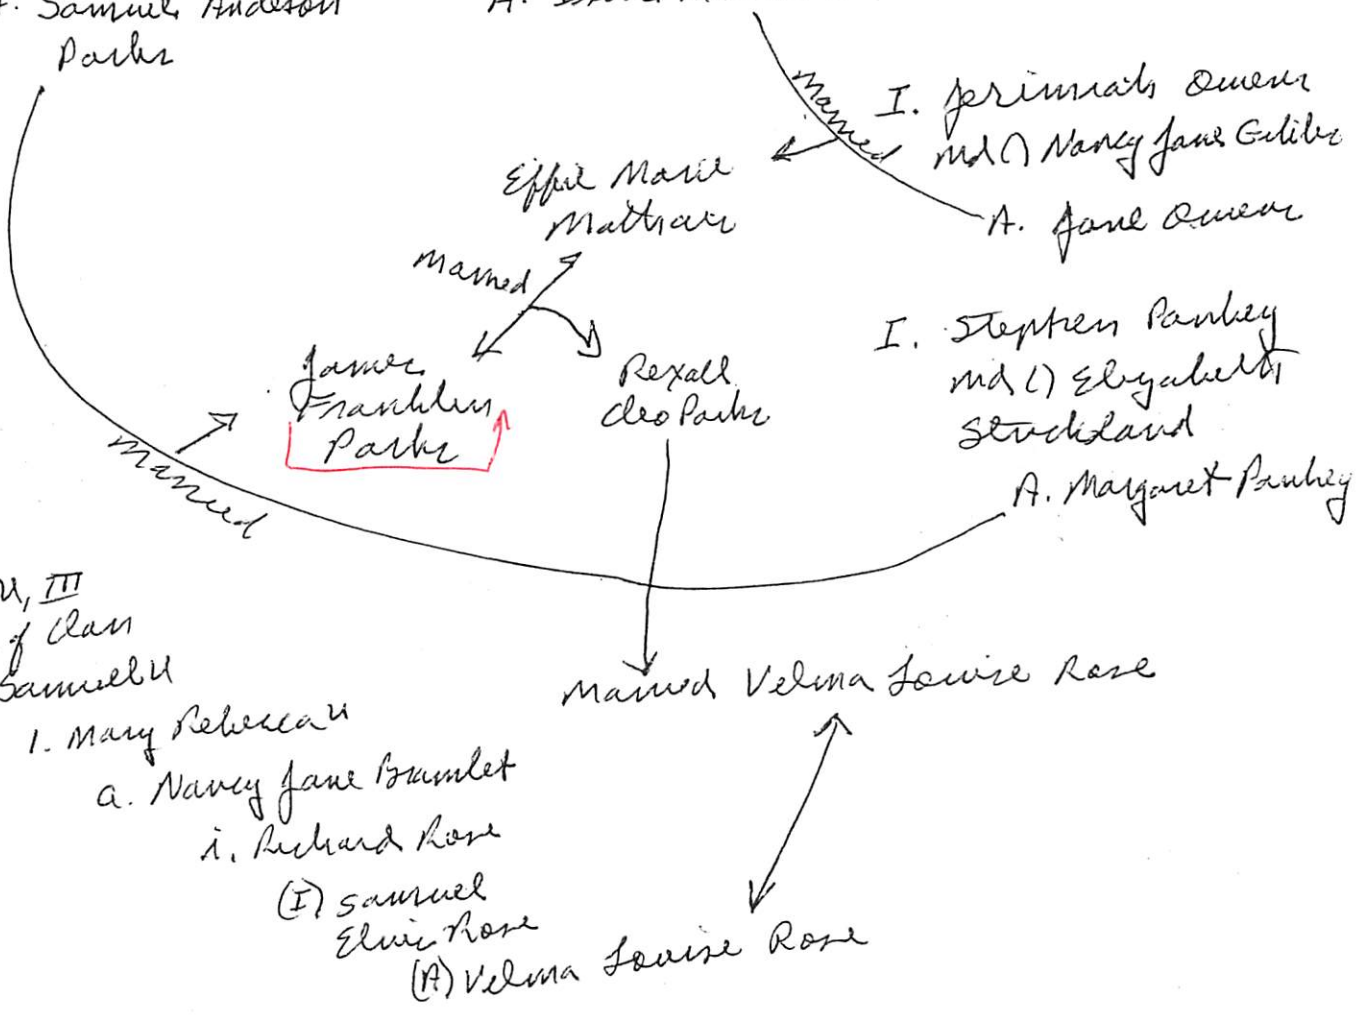 Samuel Anderson
Parks
A.
married
I. Jerimiah Owens
md () Nancy Jane
A. Jane Owens
Effie Marie
Mathews
married
James
Franklin
Parks
Rexall
Cleo Parks
I. Stephen Pankey
md () Elizabeth
Strickland
A. Margaret Pankey
married
III
of Clan
Samuel U
1. Mary Rebecca U
a. Nancy Jane Bramlet
i. Richard Rose
(I) Samuel
Elvis Rose
(A) Velma Louise Rose
Married Velma Louise Rose